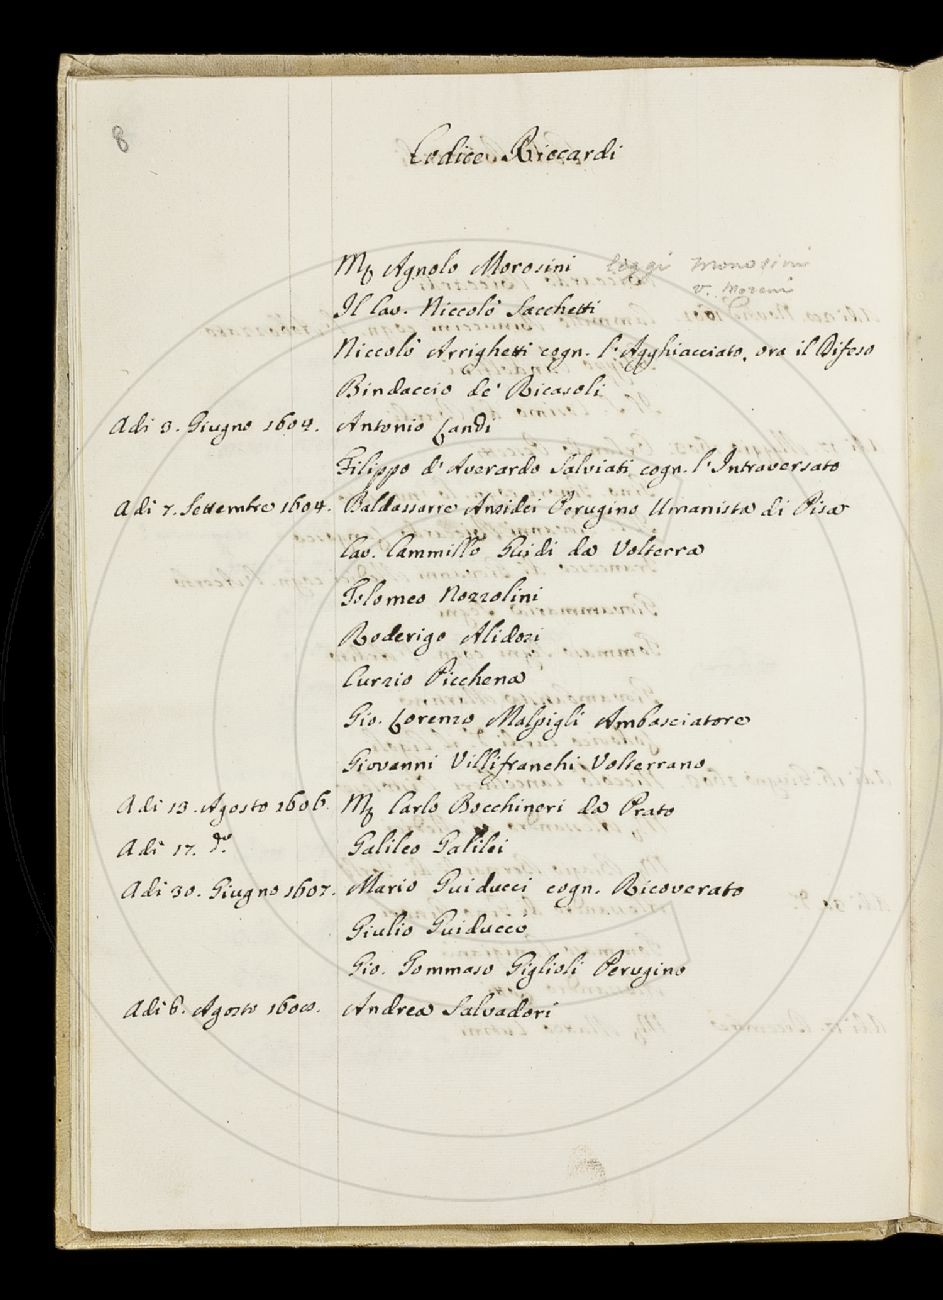 8
Codice Riccardi
Mʃ Agnolo Morosini leggi Monosini
v. Moreni
Il Cav. Niccolò Sacchetti
Niccolò Arrighetti cogn. l'Agghiacciato, ora il Difeso
Bindaccio de' Ricasoli
Adi 3. Giugno 1604. Antonio Landi
Filippo d'Averardo Salviati cogn. l'Intraversato
Adi 7. Settembre 1604. Baldassarre Ansidei Perugino Umanista di Pisa
Cav. Cammillo Guidi da Volterra
Tolomeo Nozzolini
Roderigo Alidosi
Curzio Picchena
Gio. Lorenzo Malpigli Ambasciatore
Giovanni Villifranchi Volterrano
Adi 13. Agosto 1606. Mʃ Carlo Bocchineri da Prato
Adi 17. do. Galileo Galilei
Adi 30. Giugno 1607. Mario Guiducci cogn. Ricoverato
Giulio Guiducci
Gio. Tommaso Giglioli Perugino
Adi 6. Agosto 1608. Andrea Salvadori